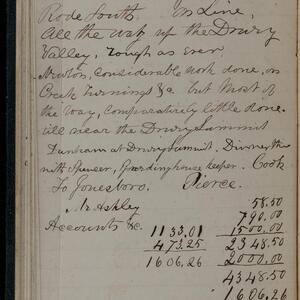 Rode South, on Line,
All the way up the Drury
Valley, rough as ever
Newton, considerable work done, on
Creek Turnings &c but most of
the way, comparatively little done.
till near the Drury Summit
Dunham at Drury Summit. Dinner there
with Spencer, Boardinghouse keeper. Cook
To Jonesboro. Pierce.
Mr Ashley 58.50
790.00
Accounts &c. 1133.01 1500.00
473.25 2348.50
1606.26 2000.00
4348.50
1606.26